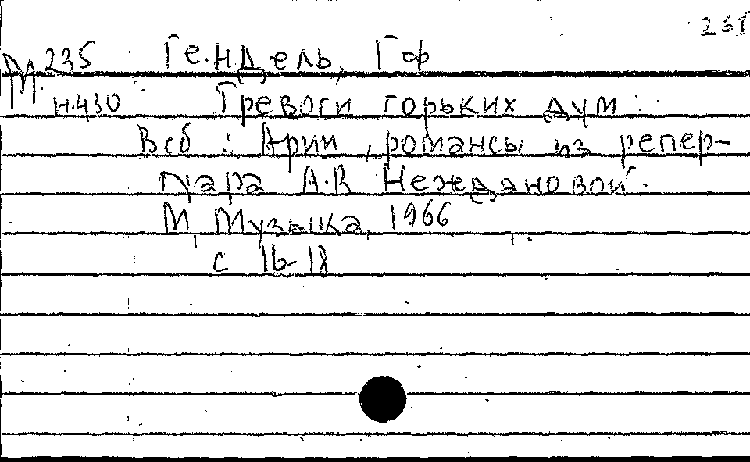 231
М 235 Гендель, Гф
Н.430 Тревоги горьких дум.
В сб: Арии, романсы из репер-
туара А.В Неждановой.
М, Музыка, 1966
с 16-18